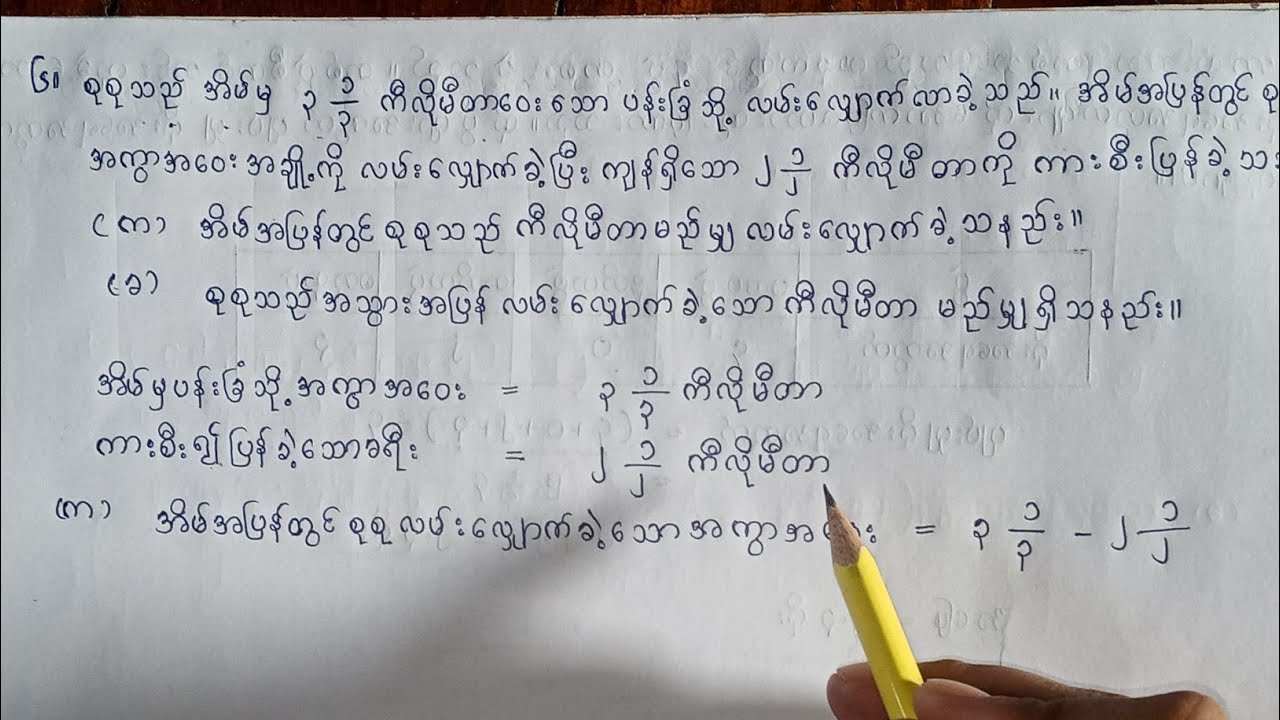 ၆။ စုစုသည် အိမ်မှ ၃ ၁/၃ ကီလိုမီတာဝေးသော ပန်းခြံသို့ လမ်းလျှောက်လာခဲ့သည်။ အိမ်အပြန်တွင်
အကွာအဝေးအချို့ကို လမ်းလျှောက်ခဲ့ပြီး ကျန်ရှိသော ၂ ၁/၂ ကီလိုမီတာကို ကားစီးပြန်ခဲ့
(က) အိမ်အပြန်တွင် စုစုသည် ကီလိုမီတာမည်မျှ လမ်းလျှောက်ခဲ့သနည်း။
(ခ) စုစုသည် အသွားအပြန် လမ်းလျှောက်ခဲ့သော ကီလိုမီတာ မည်မျှရှိသနည်း။
အိမ်မှပန်းခြံသို့ အကွာအဝေး = ၃ ၁/၃ ကီလိုမီတာ
ကားစီး၍ပြန်ခဲ့သောခရီး = ၂ ၁/၂ ကီလိုမီတာ
(က) အိမ်အပြန်တွင် စုစုလမ်းလျှောက်ခဲ့သော = ၃ ၁/၃ - ၂ ၁/၂